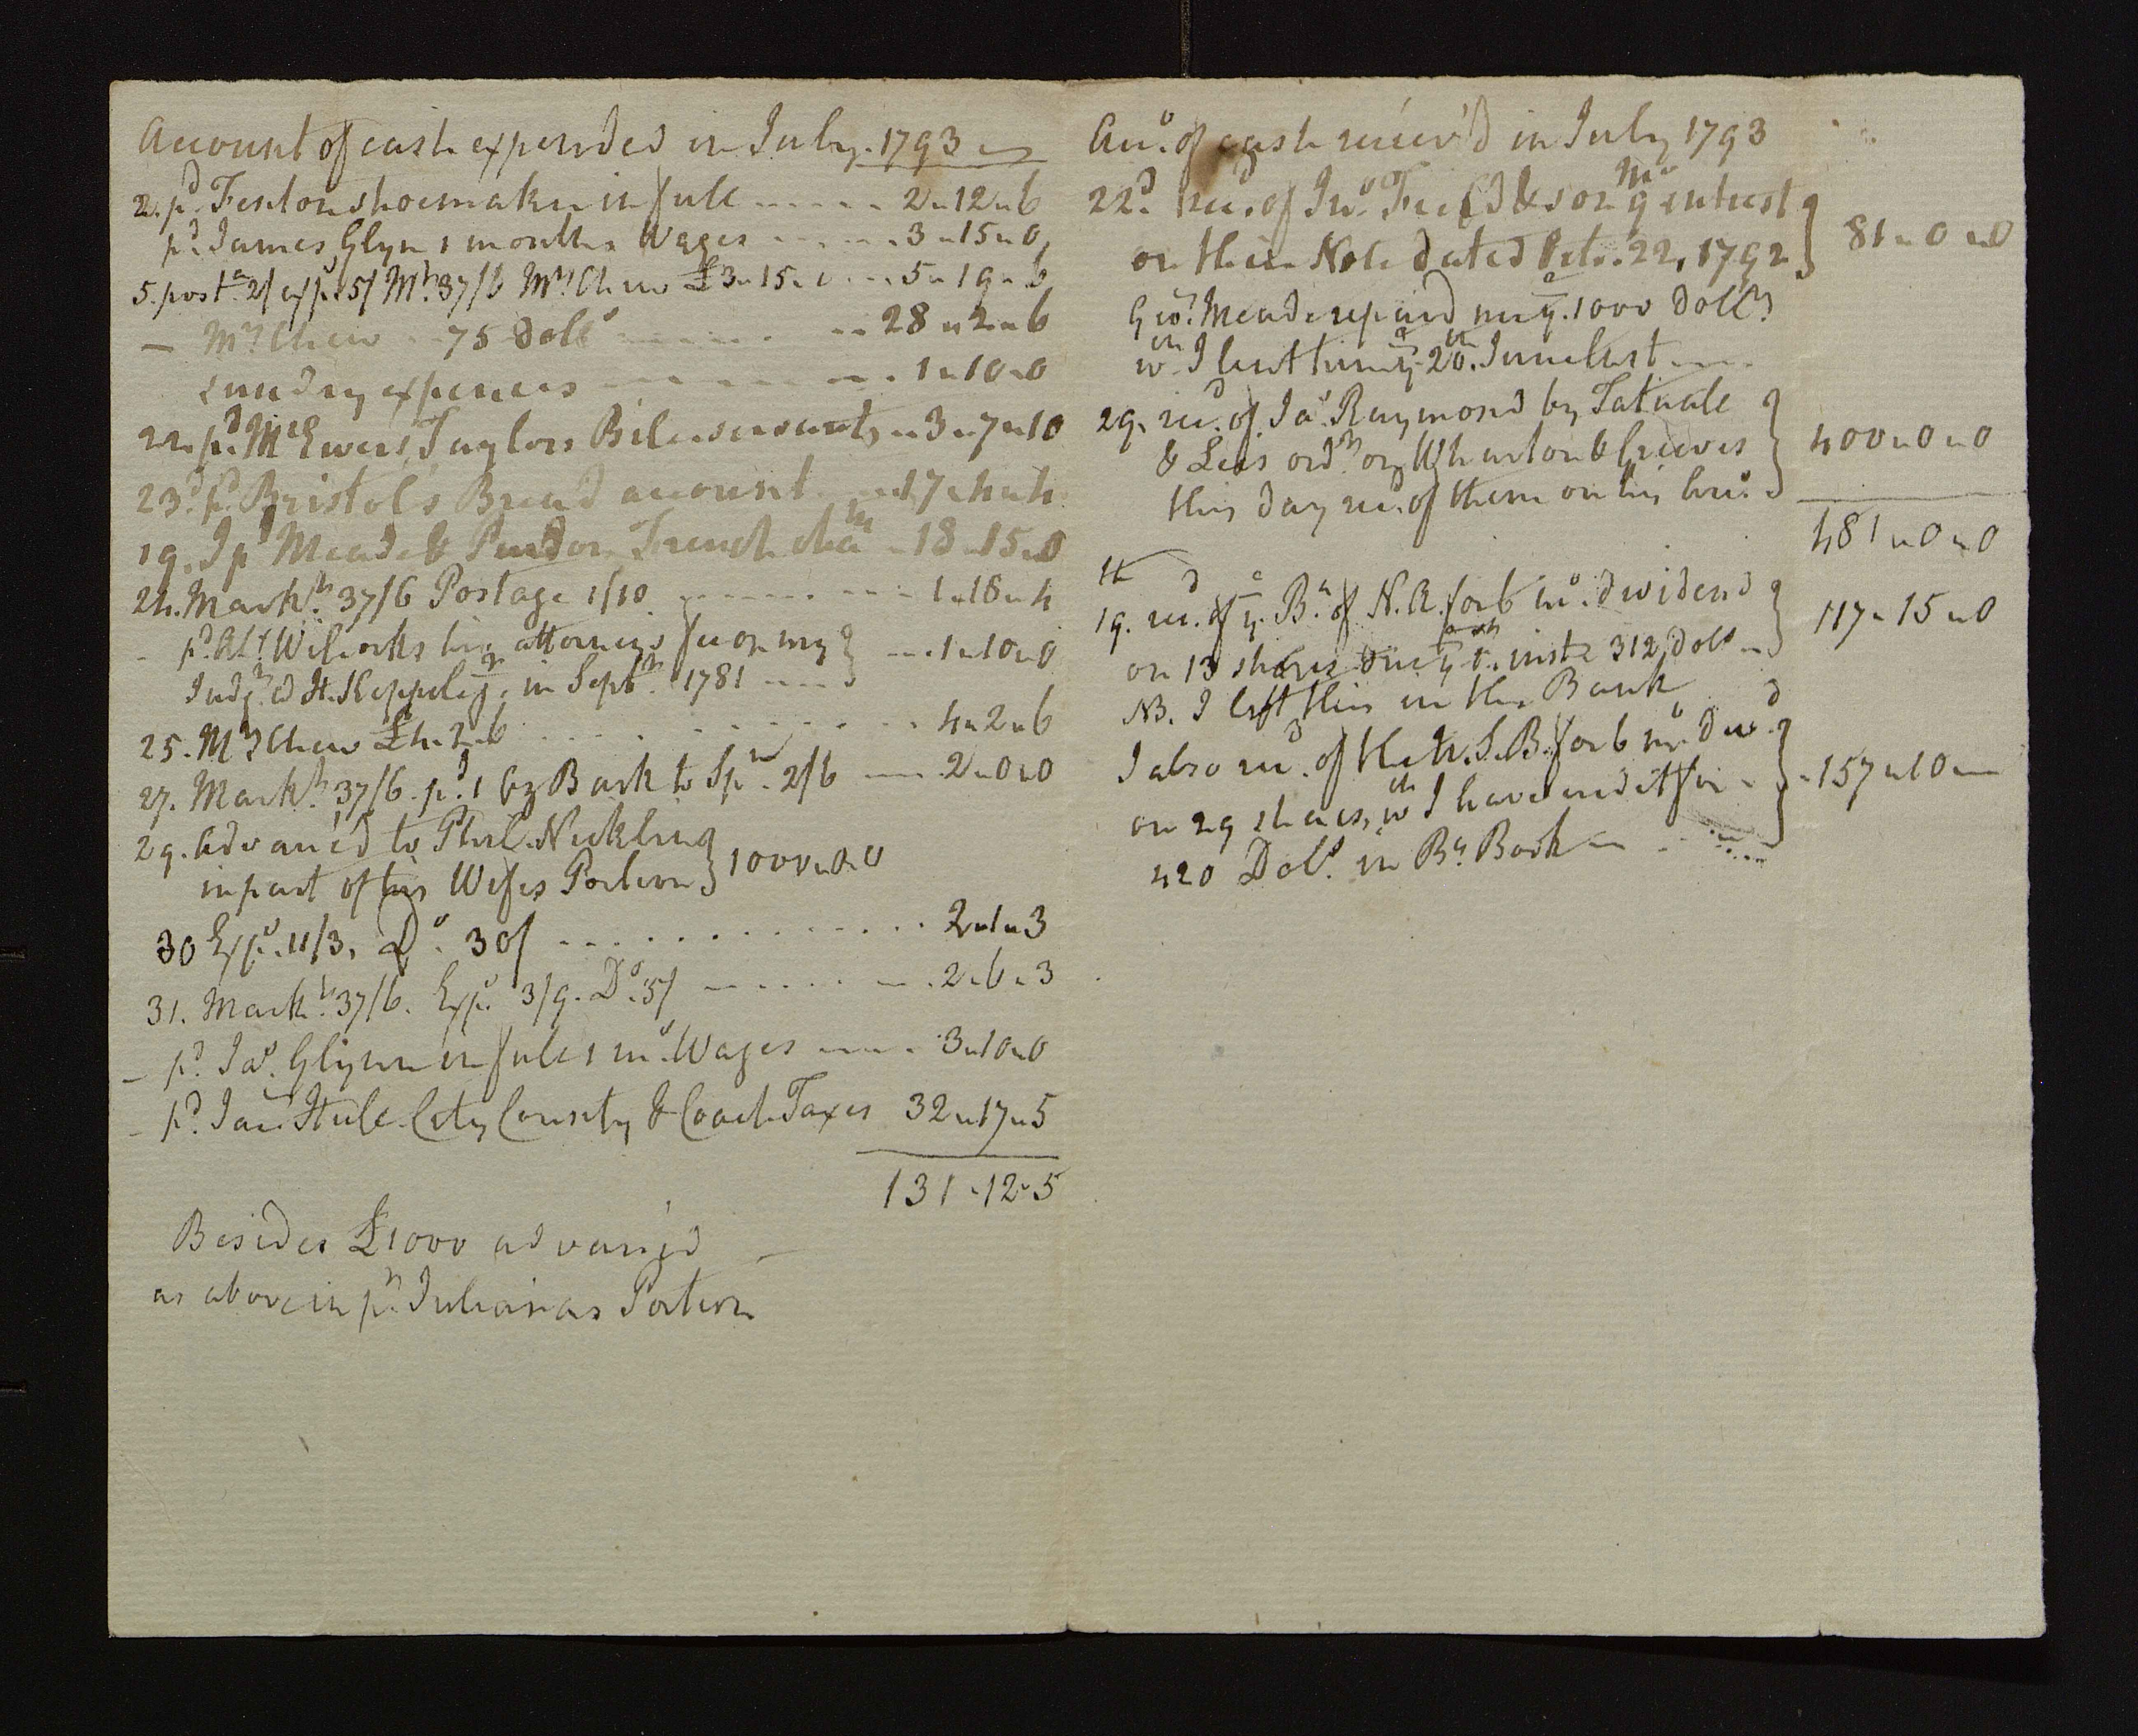 Account of cash expended in July 1793
2. pd. Fenton shoemaker in full ----- 2 " 12 " 6
pd. James Glyn 1 months Wages ----- 3 " 15 " 0
5. post.e 2/ exps. 5/ Mt. 37/6 Mrs. Chew £3 " 15 " - 5 " 19 " 6
— Mrs. Chew -- 75 Dolls ----- 28 " 2 " 6
sundry expences ----- 1 " 10 " 0
22. pd. McEwers Taylors Bill servants " 3 " 7 " 10
23d. pd. Bristol's Bread account " 17 " 4 " 4
19. I pd. Meade & Pardon French 18 " 15 " 0
24. Markt. 37/6 Postage 1/10 ----- 1 " 18 " 4
- pd. Alr. Wilcocks his attorneys fee on my } --- 1 " 10 " 0
Judgt. vs H. Keppeley in Septr. 1781 ----
25. Mrs. Chew £4. 2. 6 ----- 4 " 2 " 6
27. Markt. 37/6. pd. 1 Bark to 2/6 --- 2 " 0 " 0
29. Advanc'd to Phil. Nicklin }
in part of his Wifes Portion } 1000 " 0 " 0
30 Exps. 11/3, Do. 30/ ----- 2 " 1 " 3
31. Markt. 37/6. Exps. 3/9. Do. 5/ ----- 2 " 6 " 3
- pd. Jas. Glynn in full 1 mo. Wages ---- 3 " 10 " 0
- pd. Jac. Hill City County & Coach Taxes 32 " 17 " 5
131 " 12 " 5
Besides £1000 advanc'd
as above in pt. Julianas Portion
Acco. of cash receiv'd in July 1793
22d. recd. of Jno. Field & son 9 Mo. intrest }
on their Note dated Octr. 22, 1792 } 81 " 0 " 0
Geo. Meade repaid me ye. 1000 Dolls.
wch I lent him ye 20th. June last ----
29. recd. of Jas. Raymond by Tatnall }
& Lees ordr. on Wharton & Greeves } 400 " 0 " 0
this day recd. of them on his Acco. }
481 " 0 " 0
19. recd. of ye. Bk. of N. A. for 6 mo. dividend } 117 " 15 " 0
on 13 shares due ye inst 312 Dolls }
NB. I left this in the Bank
I also recd. of the U. S. B. for 6 mo. Divd. }
on 29 shares, wch I have credit for } 157 " 10 "
420 Dols. in Bk. Book